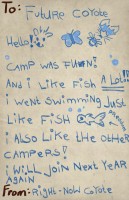 To: Future Coyote
Hello!!
Camp was Fun!!
And i like Fish A Lot!!
i went swimming Just
Like Fish
i Also Like the other
CAMPers!
i will Join Next Year
AGAIN
From: Right-Now Coyote